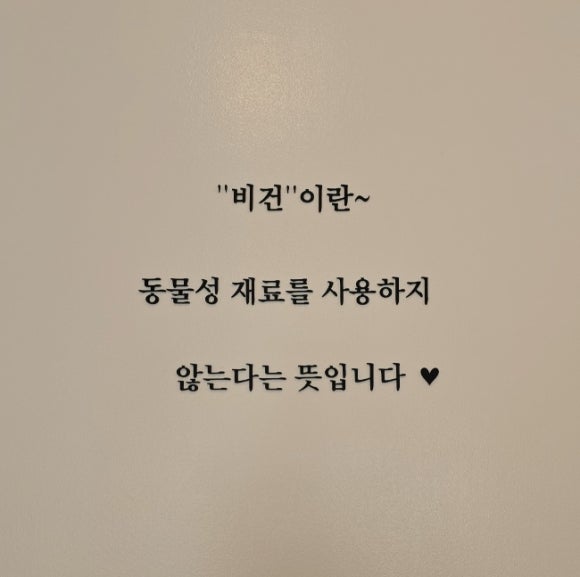 "비건"이란~
동물성 재료를 사용하지
않는다는 뜻입니다 ♥